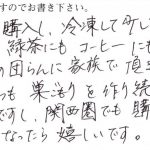 すのでお書き下さい。
購入し、冷凍して少し
緑茶にもコーヒーにも
の団らんに家族で頂き
つも巣ごもりを作り続
ですし、関西圏でも購
なったら嬉しいです。